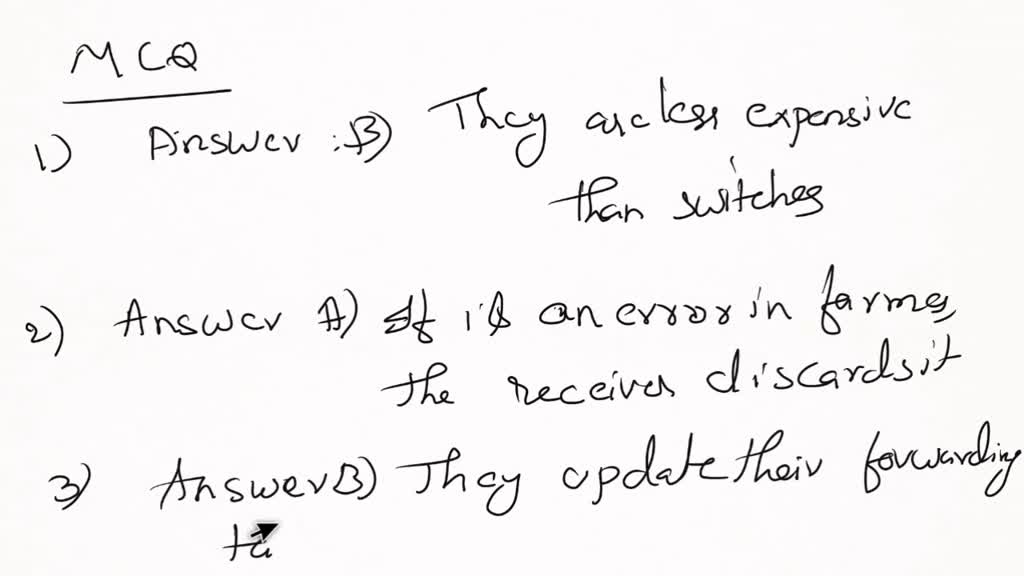 MCQ
1) Answer :B) They are less expensive
than switches
2) Answer A) If is an error in farmes,
the receives discards it
3) Answer B) They update their forwarding
ta